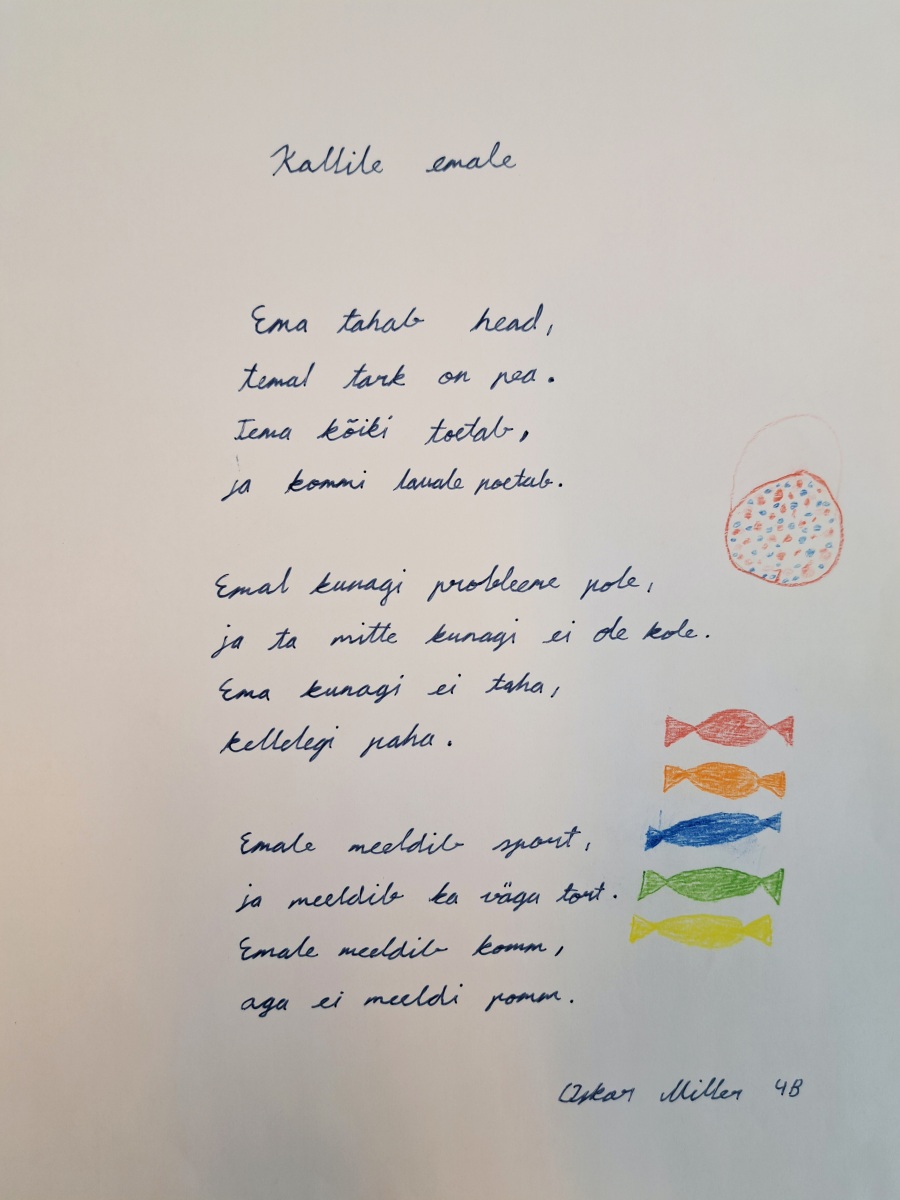 Kallile emale
Ema tahab head,
temal tark on pea.
Tema kõiki toetab,
ja kommi lauale poetab.
Emal kunagi probleeme pole,
ja ta mitte kunagi ei ole kole.
Ema kunagi ei taha,
kellelegi paha.
Emale meeldib sport,
ja meeldib ka väga tort.
Emale meeldib komm,
aga ei meeldi pomm.
Oskar Miller 4B